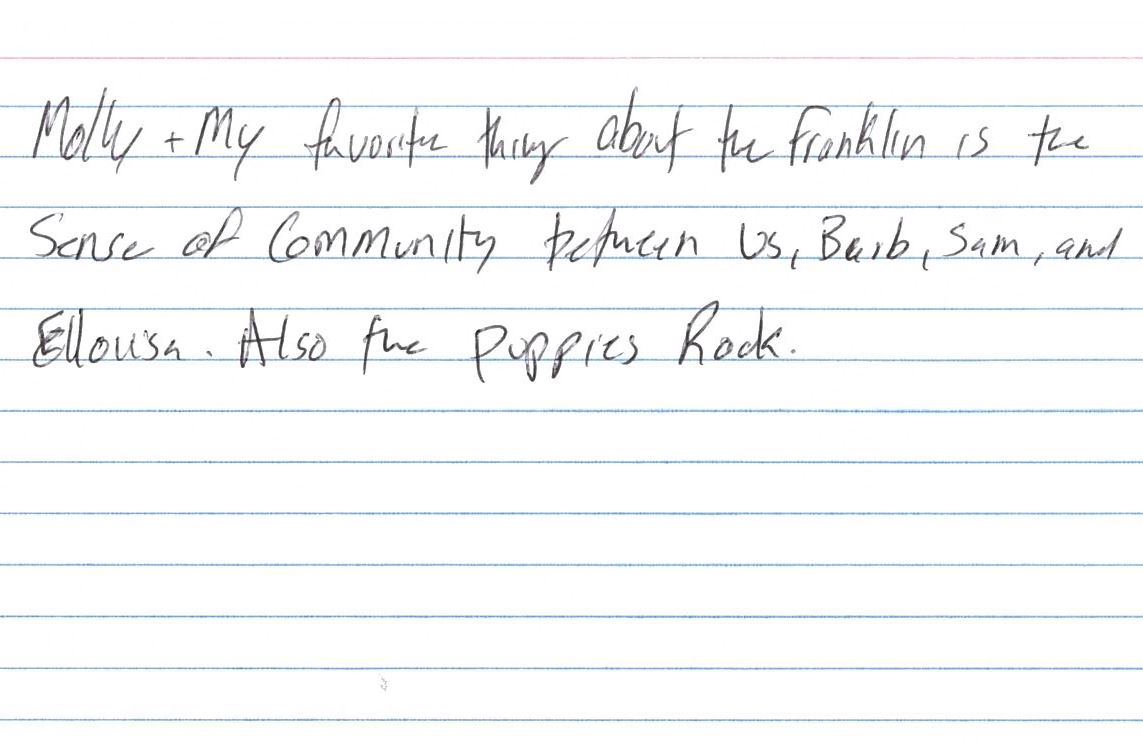 Molly + My favorite thing about the Franklin is the
Sense of Community between Us, Barb, Sam, and
Ellouisa. Also the puppies Rock.